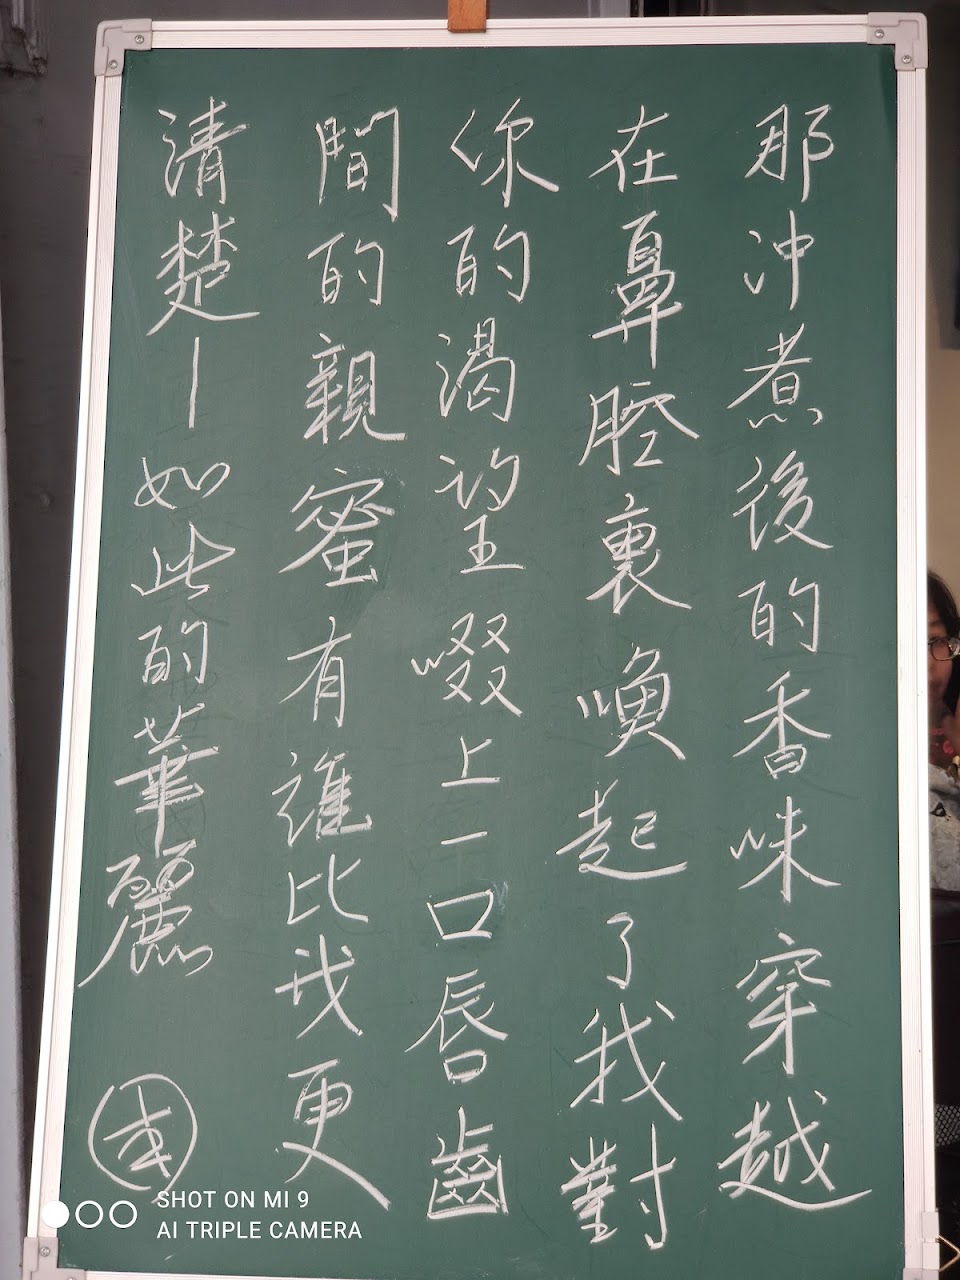 那沖煮後的香味穿越
在鼻腔裏喚起了我對
你的渴望啜上一口唇齒
間的親蜜有誰比我更
清楚—如此的華麗
SHOT ON MI 9
AI TRIPLE CAMERA